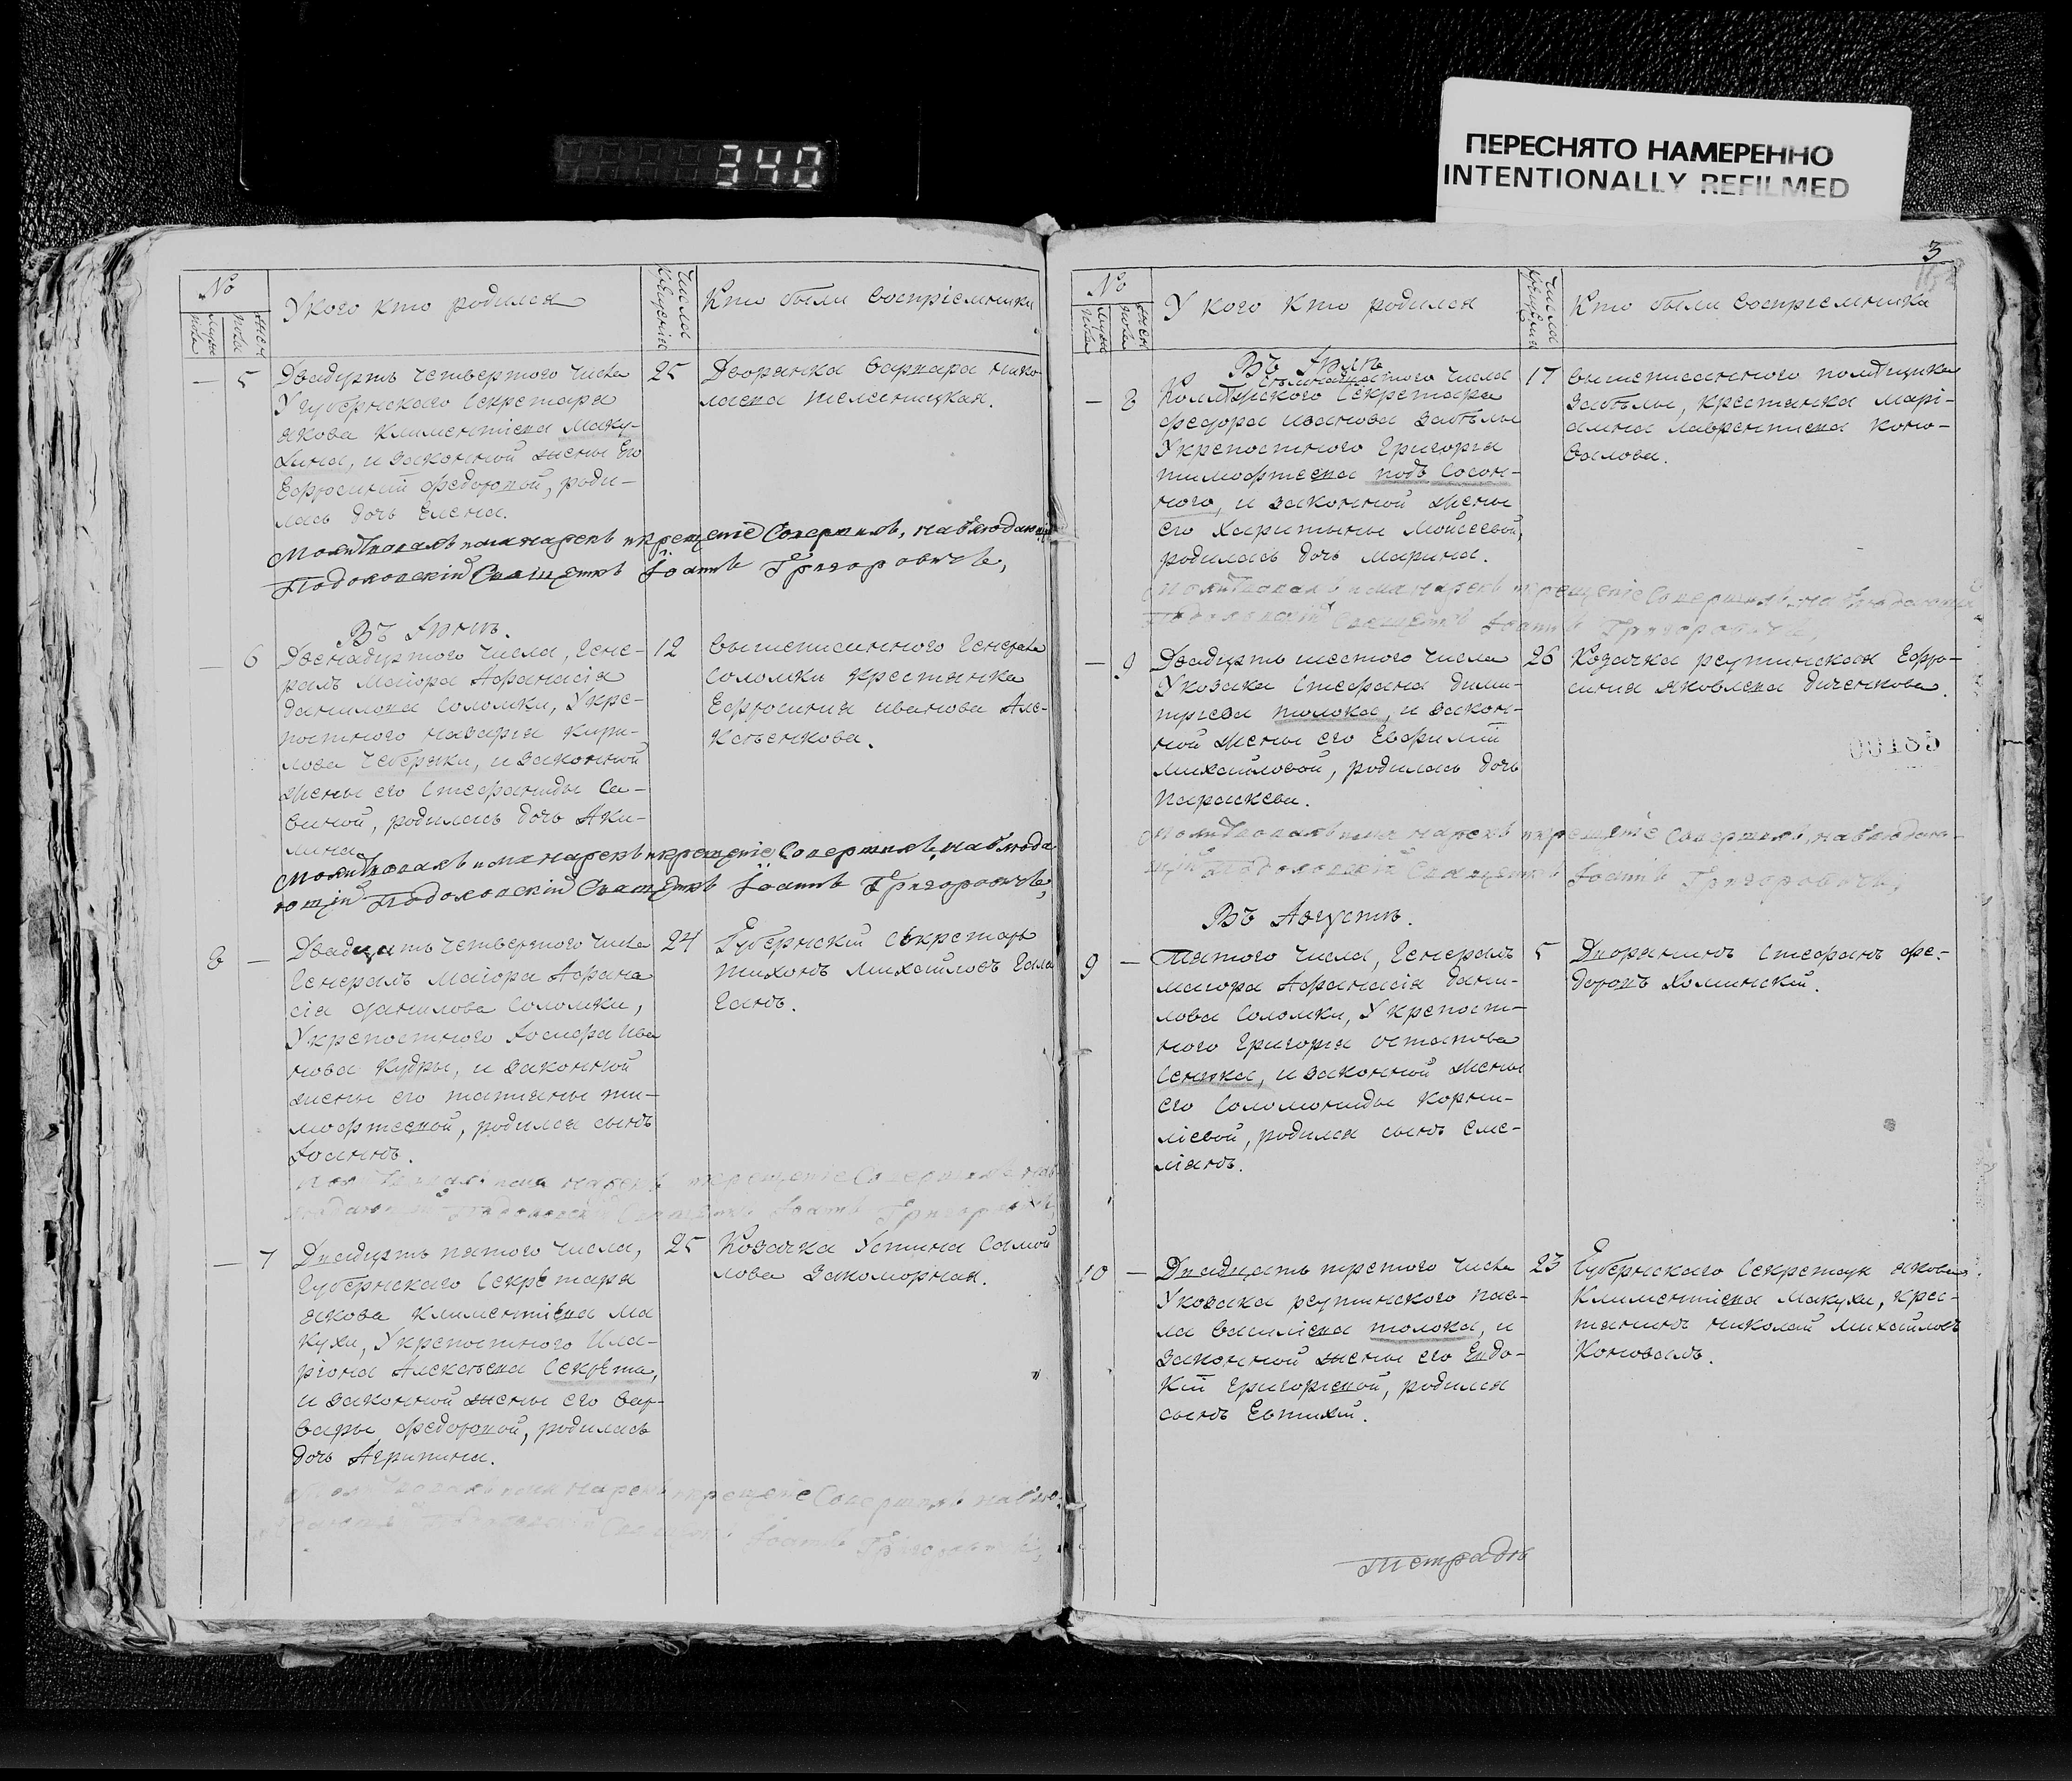 340
ПЕРЕСНЯТО НАМЕРЕННО
INTENTIONALLY REFILMED
№
мужеска
женска
У кого кто родился
Числа крещенія
Кто были воспріемники
— 5
Двадцять четвертого числа
У губернскаго Секретаря
Якова Климентіева Маку-
и законной жены Его
Ефросиніи Федоровой, роди-
лась дочь Елена.
25
Дворянка Варвара Нико-
лаева
Молитвовалъ имя нарекъ и крещеніе Совершилъ, наблюдающій
Подоловскій Священникъ Іоаннъ Григоровичъ,
Въ Іюнѣ.
— 6
Двенадцятого числа, Гене-
ралъ Маіора Афанасія
Данилова Соломки, У кре-
постного Назарія Кири-
лова Чебряки, и законной
жены его Стефаниды Са-
виной, родилась дочь Аки-
лина
12
вышеписанного Генерала
Соломки крестянка
Ефросинія Иванова Але-
ксѣенкова.
Молитвовалъ имя нарекъ и крещеніе Совершилъ, наблюда
ющій Подоловскій Священникъ Іоаннъ Григоровичъ,
8 —
Двадцать четвертого числа
Генералъ Маіора Афана
сія Данилова Соломки,
У крепостного Іосифа Ива
нова Кудры, и законной
жены его Татіяны Ти-
мофѣевой, родился сынъ
Іоаннъ.
24
Губернскій Секретарь
Тихонъ Михайловъ Гала
ганъ.
Молитвовалъ имя нарекъ и крещеніе Совершилъ наб
людающій Подоловскій Священникъ Іоаннъ Григоровичъ,
— 7
Двадцять пятого числа,
Губернскаго Секретаря
Якова Климентіева Ма
кухи, У крепостного Ила-
ріона Алексѣева Секрета,
и законной жены его Вар-
вары Федоровой, родилась
дочь Агрипина.
25
Козачка Устина Самой
лова Закоморная.
Молитвовалъ имя нарекъ и крещеніе Совершилъ наблю-
дающій Подоловскій Священникъ Іоаннъ Григоровичъ,
3
№
мужеска
женска
У кого кто родился
Числа крещенія
Кто были воспріемники
Въ Іюлѣ
— 8
Семнадцатого числа
Секретаря
Федора Иванова Забѣлы
У крепостного Григорія
Тимофѣева подъ Сосон-
ного, и законной жены
его Харитыны Мойсеевой,
родилась дочь Марина.
17
вышеписанного помѣщика
Забѣлы, крестянка Марі-
амна Лаврентіева Коно-
валова.
Молитвовалъ имя нарекъ и крещеніе Совершилъ наблюдающій
Подоловскій Священникъ Іоаннъ Григоровичъ,
— 9
Двадцять шестого числа
У козака Стефана Дими-
тріева Толока, и закон-
ной жены его Евфиміи
Михайловой, родилась дочь
Параскева.
26
Козачка реутинская Ефро-
синія Яковлева Диченкова.
00189
Молитвовалъ имя нарекъ и крещеніе Совершилъ, наблюдаю-
щій Подоловскій Священникъ Іоаннъ Григоровичъ,
Въ Августѣ.
9 —
Пятого числа, Генералъ
Маіора Афанасія Дани-
лова Соломки, У крепост-
ного Григорія Остапова
Сеника, и законной жены
его Соломониды Корни-
ліевой, родился сынъ Еме-
ліянъ.
5
Дворянинъ Стефанъ Фе-
доровъ Холминскій.
10 —
Двадцать третого числа
У козака реутинского Пав-
ла Василіева Толока, и
законной жены его Евдо-
кіи Григоріевой, родился
сынъ Евтихій.
23
Губернскаго Секретаря Якова
Климентіева Макухи, Крес-
тянинъ Николай Михайловъ
Коновалъ.
тетрадь